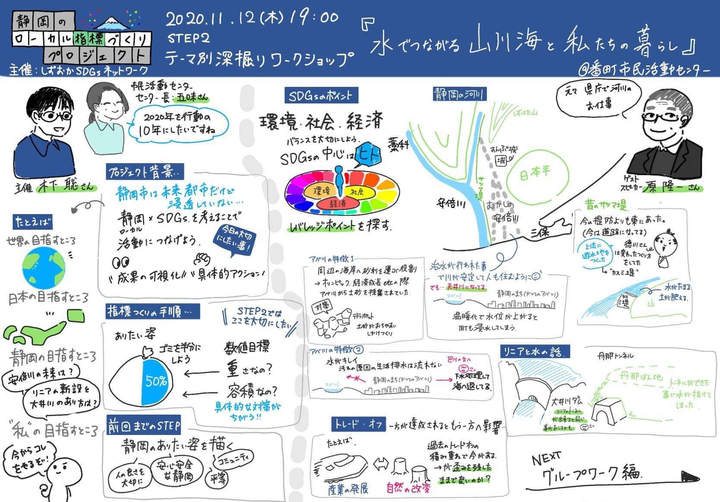 静岡の
ローカル指標づくり
プロジェクト
主催：しずおかSDGsネットワーク
2020.11.12(木)19:00
STEP2
テーマ別深掘りワークショップ
『水でつながる山川海と私たちの暮らし』
@番町市民活動センター
市民活動センター
センター長：五味さん
2020年を行動の
10年にしたいですね
主催 木下 聡さん
プロジェクト背景…
静岡市は未来都市だけど
浸透していない…
静岡×SDGsを考えることで
ローカル
活動につなげよう。
今日の大切
にしたい事！
"成果の可視化""具体的アクション"
SDGsのポイント
環境・社会・経済
バランスを大切にしよう。
SDGsの中心はヒト
環境
社会
経済
レバレッジポイントを探す。
静岡の河川
藁科
安倍川
日本平
安倍川
三保
元々県庁で河川の
お仕事
ゲスト
スピーカー 原 隆一さん
昔のサツマ堤
今の堤防よりも東にあった。
(今は道路になってる)
水がたまる
土が肥える。
山
たとえば
世界の目指すところ
日本の目指すところ
静岡の目指すところ
安倍川の未来は？
リニアの新設を
大井川のあり方は？
"私"の目指すところ
今からコレ
をやるぞ…！
指標づくりの手順…
STEP2では
ここを大切にしたい
ありたい姿
ゴミを半分に
しよう
50%
数値目標
重さなの？
容積なの？
具体的な対策が
ちがう!!
前回までのSTEP
静岡のありたい姿を描く
人の良さを
大切に
安心安全
な静岡
コミュニティ
平等
アベ川の特徴1
周辺の海岸へ砂利を運ぶ役割
→オリンピック、経済成長etcの際
アベ川から土砂を採集されていた。
アベ川の特徴2
水がキレイ
汚れの原因の生活排水は流れない
静岡のまち(かつてのアベ川)
治水が行われた事
で川が安定して人も住むように
でも…天井川になってる
静岡のまち(かつてのアベ川)
温暖化で水位が上がると
町も浸水してしまう。
リニアと水の話
丹那トンネル
丹那ぼん地
大井川ダム
トンネルができた
事で水が抜けて
しまった。
トレード・オフ
一方が達成されるともう一方へ影響
たとえば、
産業の発展
自然の改変
過去のトレードオフの
積み重ねで今がある。
→が歪みを残した
ままで良いのか？
NEXT
グループワーク編。